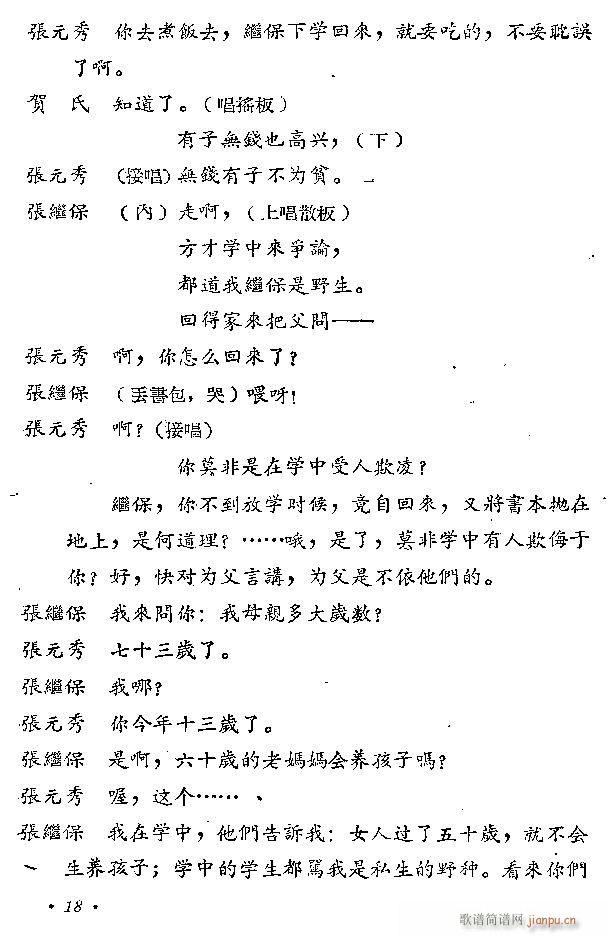 張元秀　你去煮飯去，繼保下学回來，就要吃的，不要耽誤
了啊。
賀　氏　知道了。（唱搖板）
有子無錢也高兴，（下）
張元秀　（接唱）無錢有子不为貧。
張繼保　（內）走啊，（上唱散板）
方才学中來爭論，
都道我繼保是野生。
回得家來把父問——
張元秀　啊，你怎么回來了？
張繼保　（丟書包，哭）喂呀！
張元秀　啊？（接唱）
你莫非是在学中受人欺凌？
繼保，你不到放学时候，竟自回來，又將書本抛在
地上，是何道理？……哦，是了，莫非学中有人欺侮于
你？好，快对为父言講，为父是不依他們的。
張繼保　我來問你：我母親多大歲数？
張元秀　七十三歲了。
張繼保　我哪？
張元秀　你今年十三歲了。
張繼保　是啊，六十歲的老媽媽会养孩子嗎？
張元秀　喔，这个……
張繼保　我在学中，他們告訴我：女人过了五十歲，就不会
生养孩子；学中的学生都駡我是私生的野种。看來你們
· 18 ·
歌谱简谱网
jianpu.cn